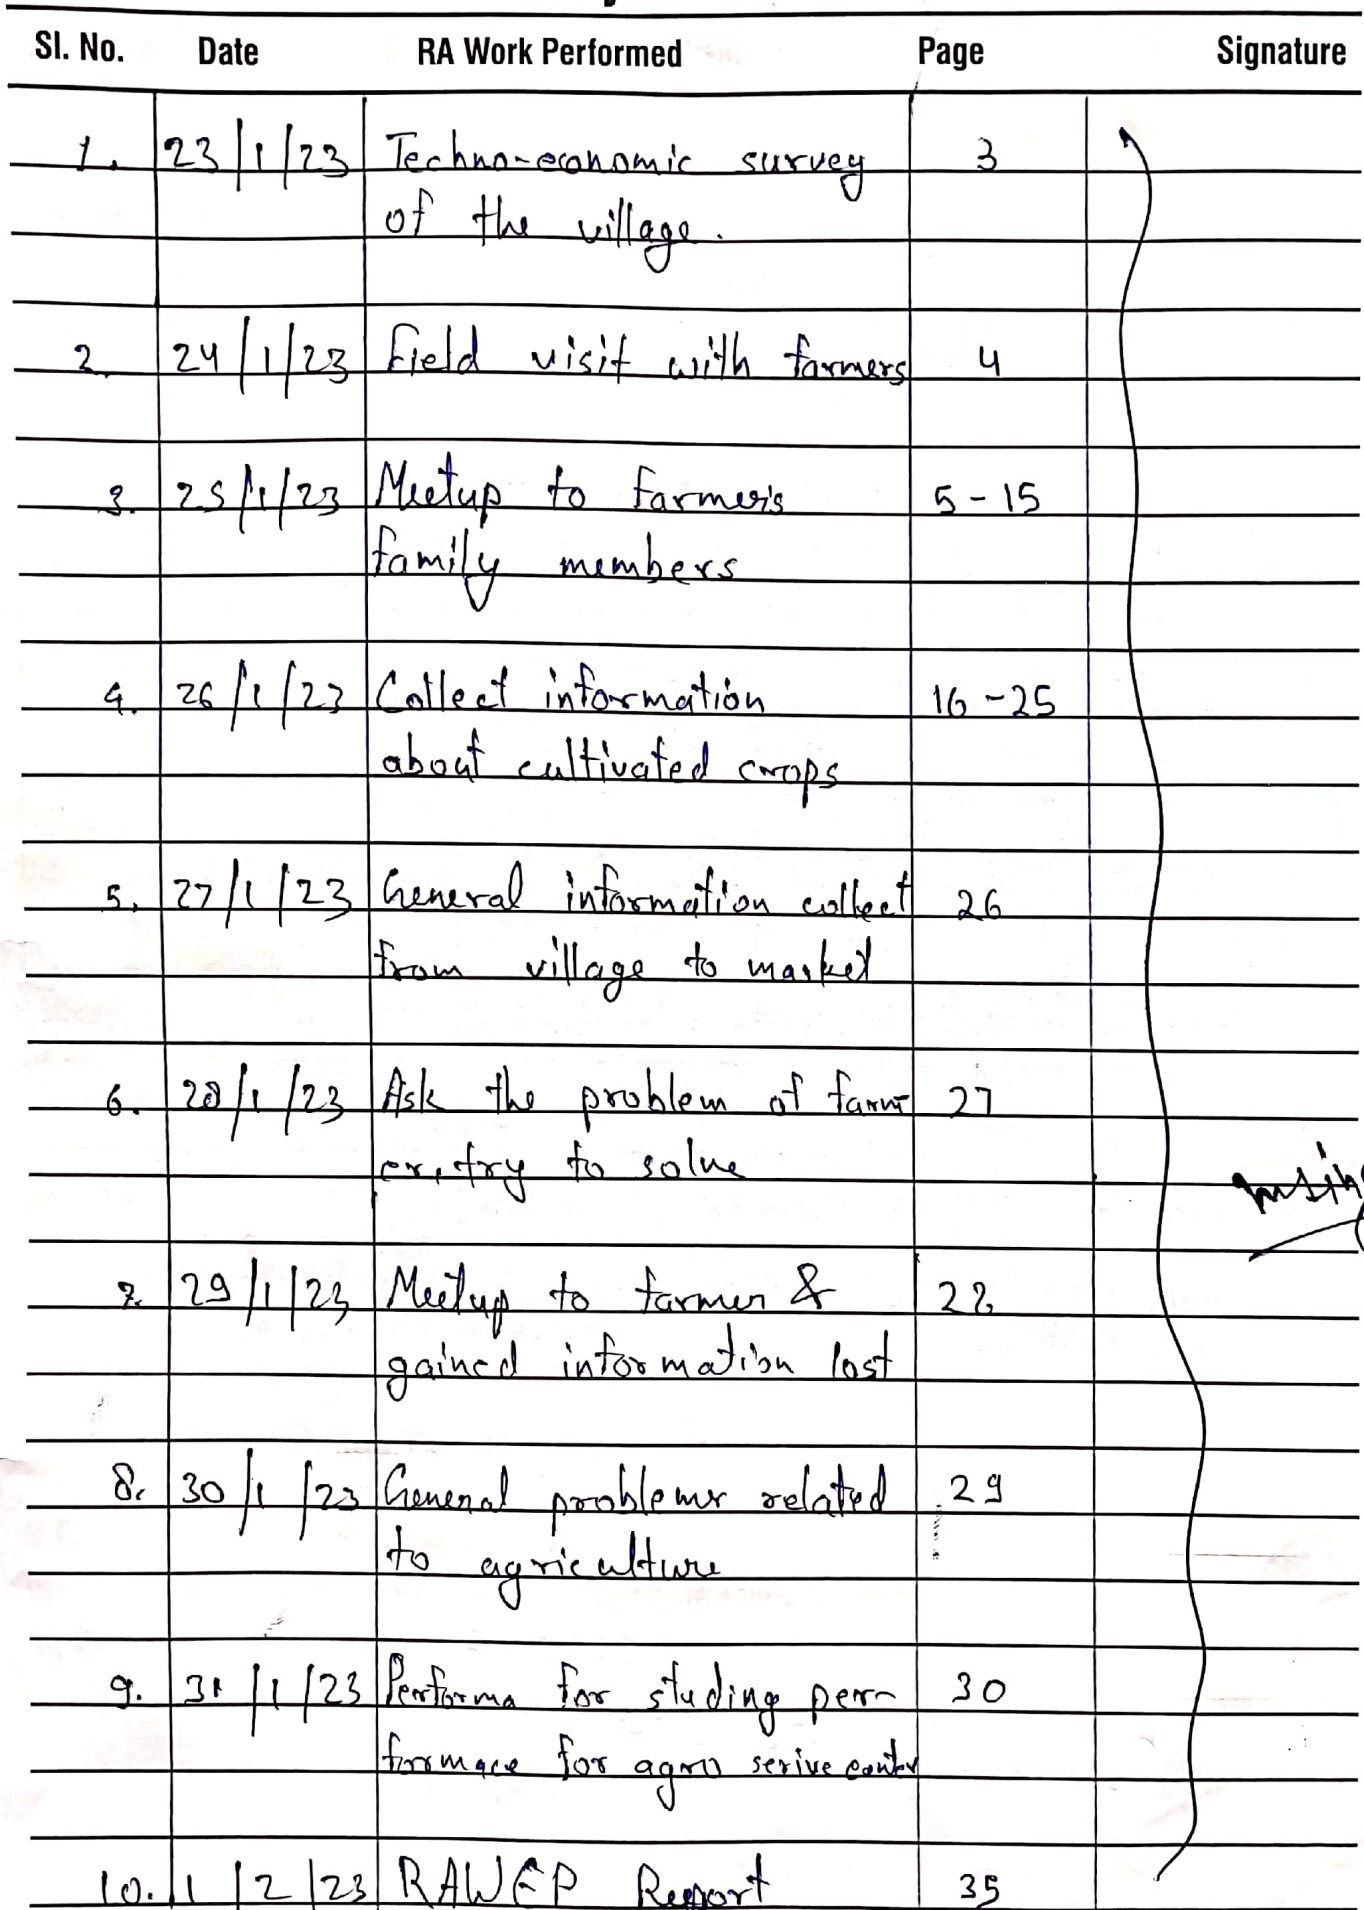 Sl. No. Date RA Work Performed Page Signature
1. 23/1/23 Techno-economic survey 3
of the village.
2. 24/1/23 Field visit with farmers 4
3. 25/1/23 Meetup to farmer's 5-15
family members
4. 26/1/23 Collect information 16-25
about cultivated crops
5. 27/1/23 General information collect 26
from village to market
6. 28/1/23 Ask the problem of farm 27
er, try to solve
7. 29/1/23 Meetup to farmer & 22
gained information last
8. 30/1/23 General problems related 29
to agriculture
9. 31/1/23 Performa for studing per- 30
formace for agro serive center
10. 1/2/23 RAWEP Report 35